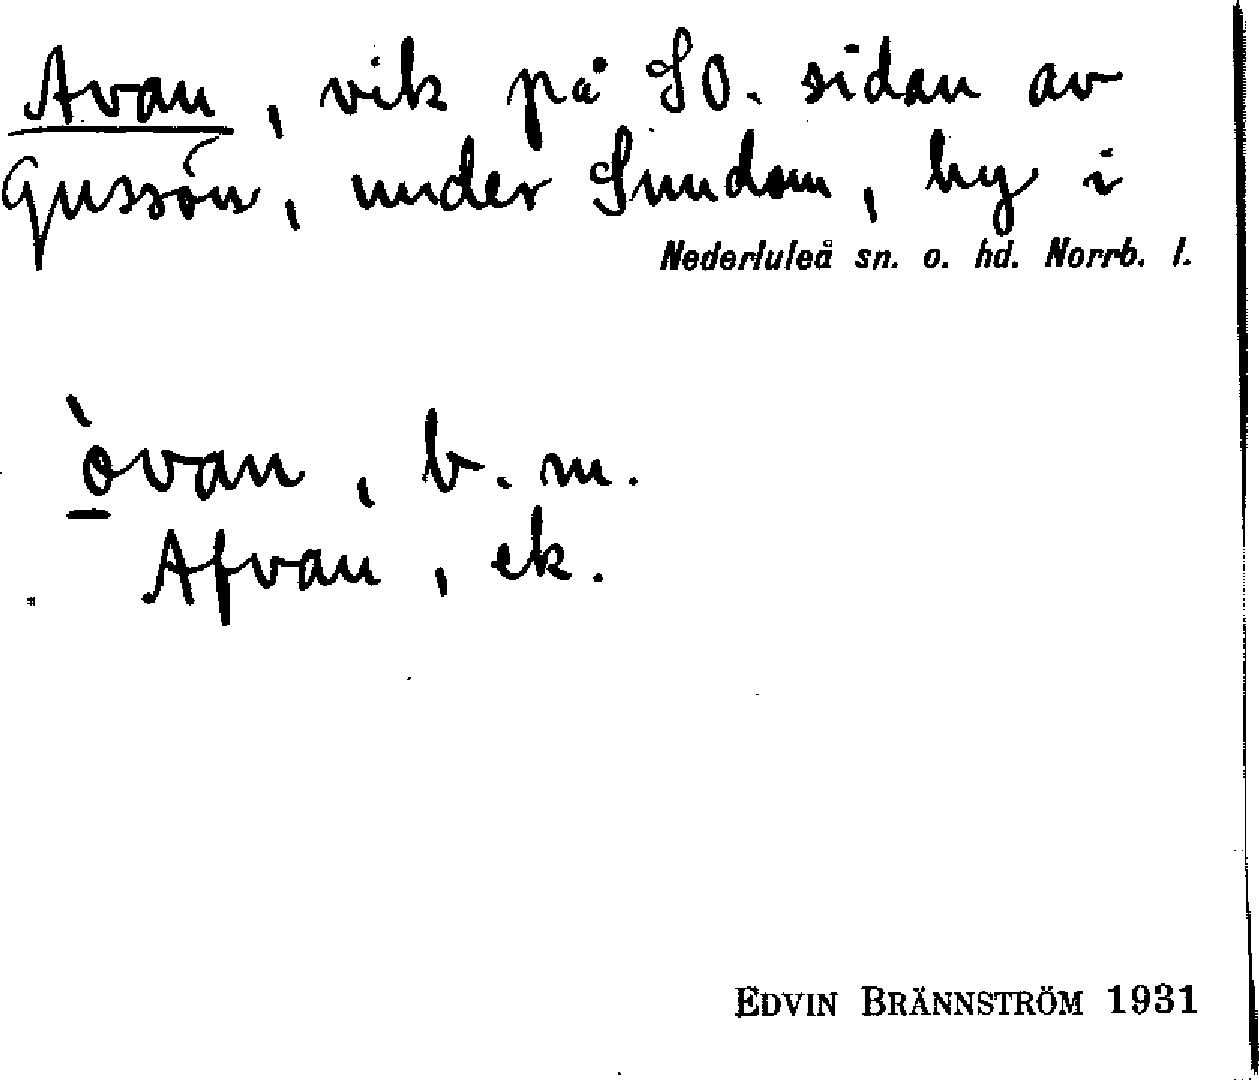 Avan, vik på SO. sidan av
Gussön, under Sundom, by i
Nederluleå sn. o. hd. Norrb. l.
òvan, b. m.
Afvan, ek.
EDVIN BRÄNNSTRÖM 1931